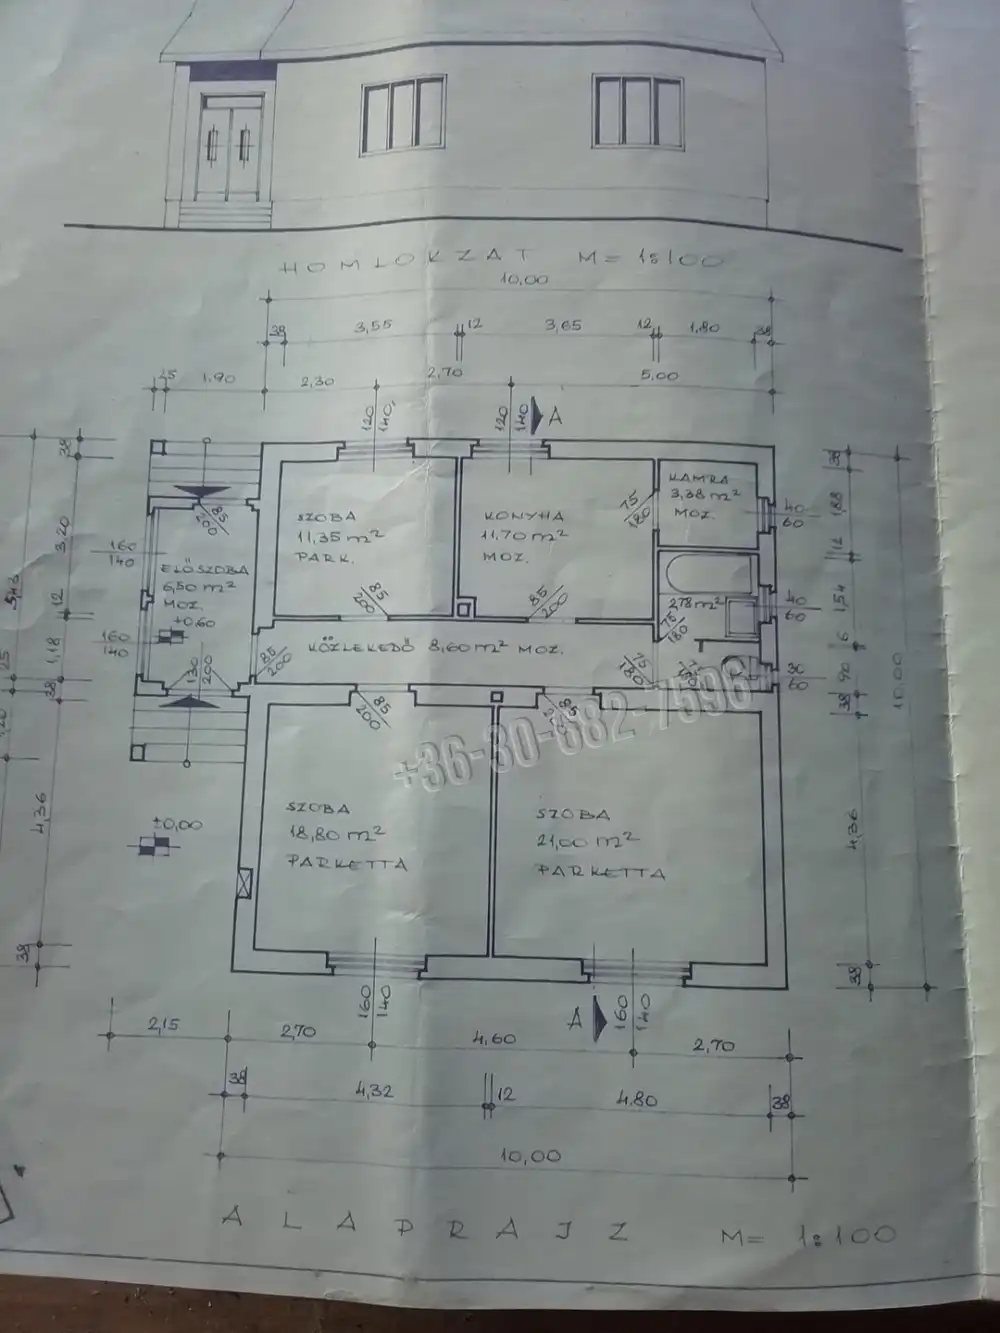 HOMLOKZAT M= 1:100
10,00
38 3,55 12 3,65 12 1,80 38
25 1,90 2,30 2,70 5,00
120
140
120
140
A
38
3,20
12
1,18
38
4,36
38
160
140
160
140
85
200
ELŐSZOBA
6,50 m²
MOZ.
+0,60
130
200
SZOBA
11,35 m²
PARK.
85
200
KONYHA
11,70 m²
MOZ.
85
200
75
180
KAMRA
3,38 m²
MOZ.
40
60
2,78 m²
75
180
40
60
85
200
KÖZLEKEDŐ 8,60 m² MOZ.
75
180
30
60
38
1,88
12
1,54
6
90
38
4,36
38
10,00
85
200
85
+36-30-682-7596
SZOBA
18,80 m²
PARKETTA
SZOBA
21,00 m²
PARKETTA
±0,00
160
140
A
160
140
2,15 2,70 4,60 2,70
38 4,32 12 4,80 38
10,00
ALAPRAJZ M= 1:100